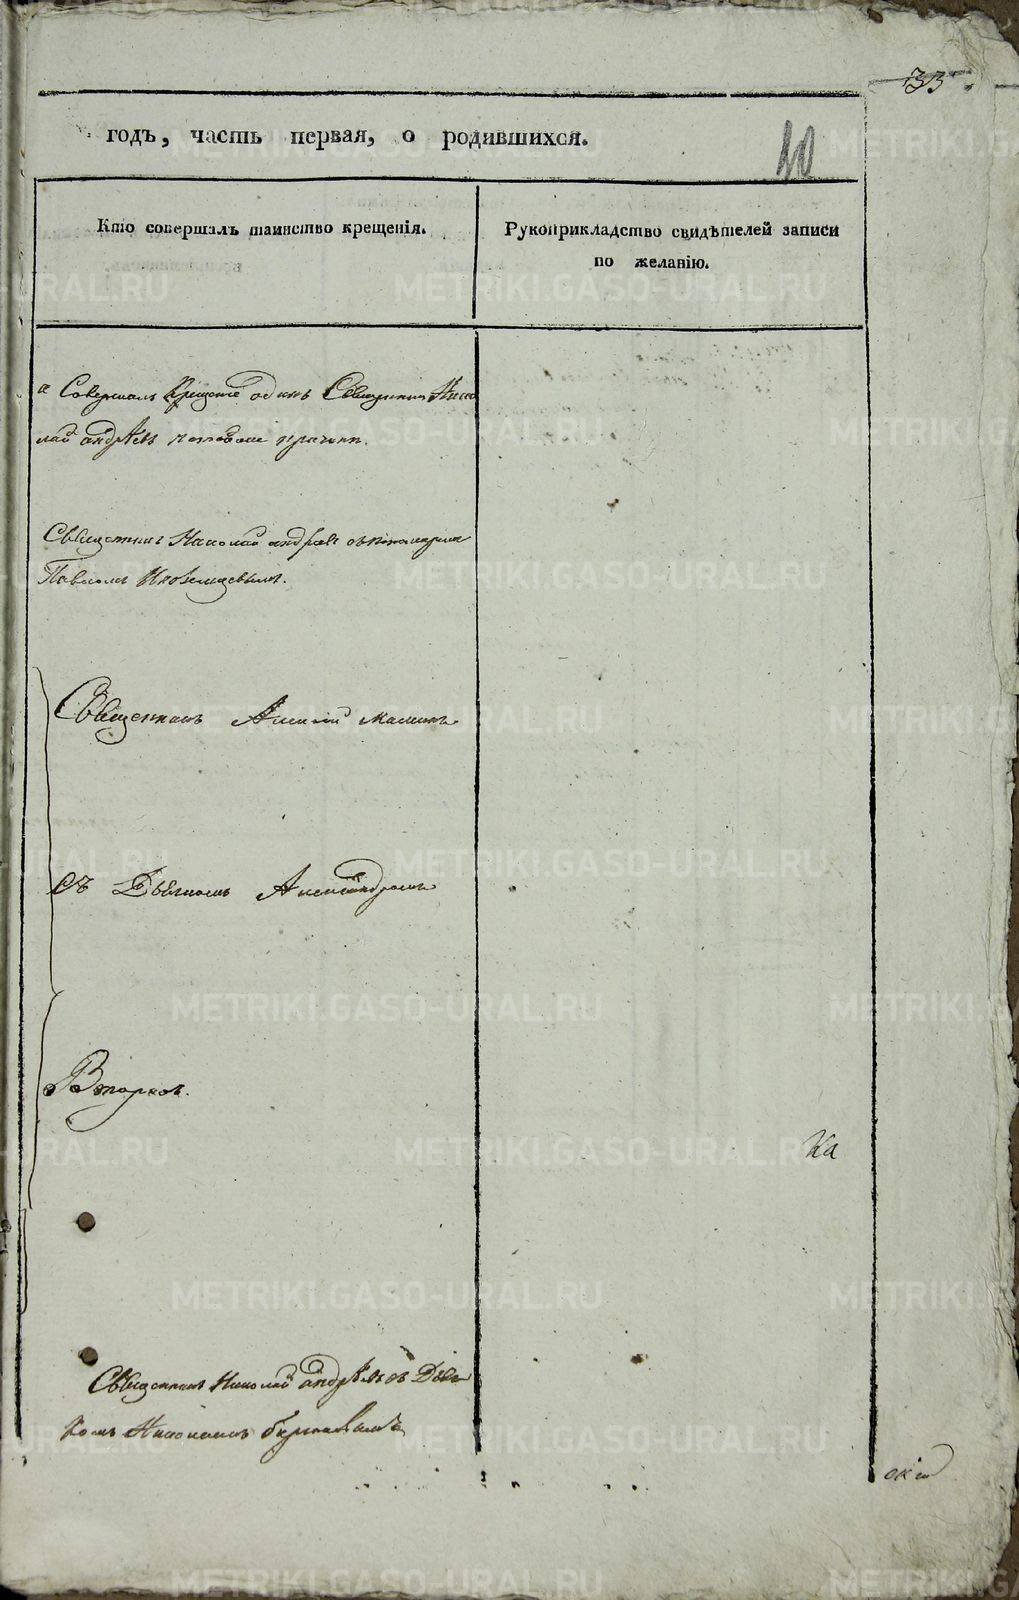 33
годъ, часть первая, о родившихся.
10
Кто совершалъ таинство крещенія.
Рукоприкладство свидѣтелей записи
по желанію.
Совершалъ Крещеніе одинъ Священникъ Нико
лай андрѣевъ
Священникъ Николай андреевъ съ пономаремъ
Павломъ Иноземцевымъ.
Священникъ Алексій
съ Дьякономъ Александромъ
Священникъ Николай андрѣевъ съ Дьяч
комъ Николаемъ
Ка
METRIKI.GASO-URAL.RU